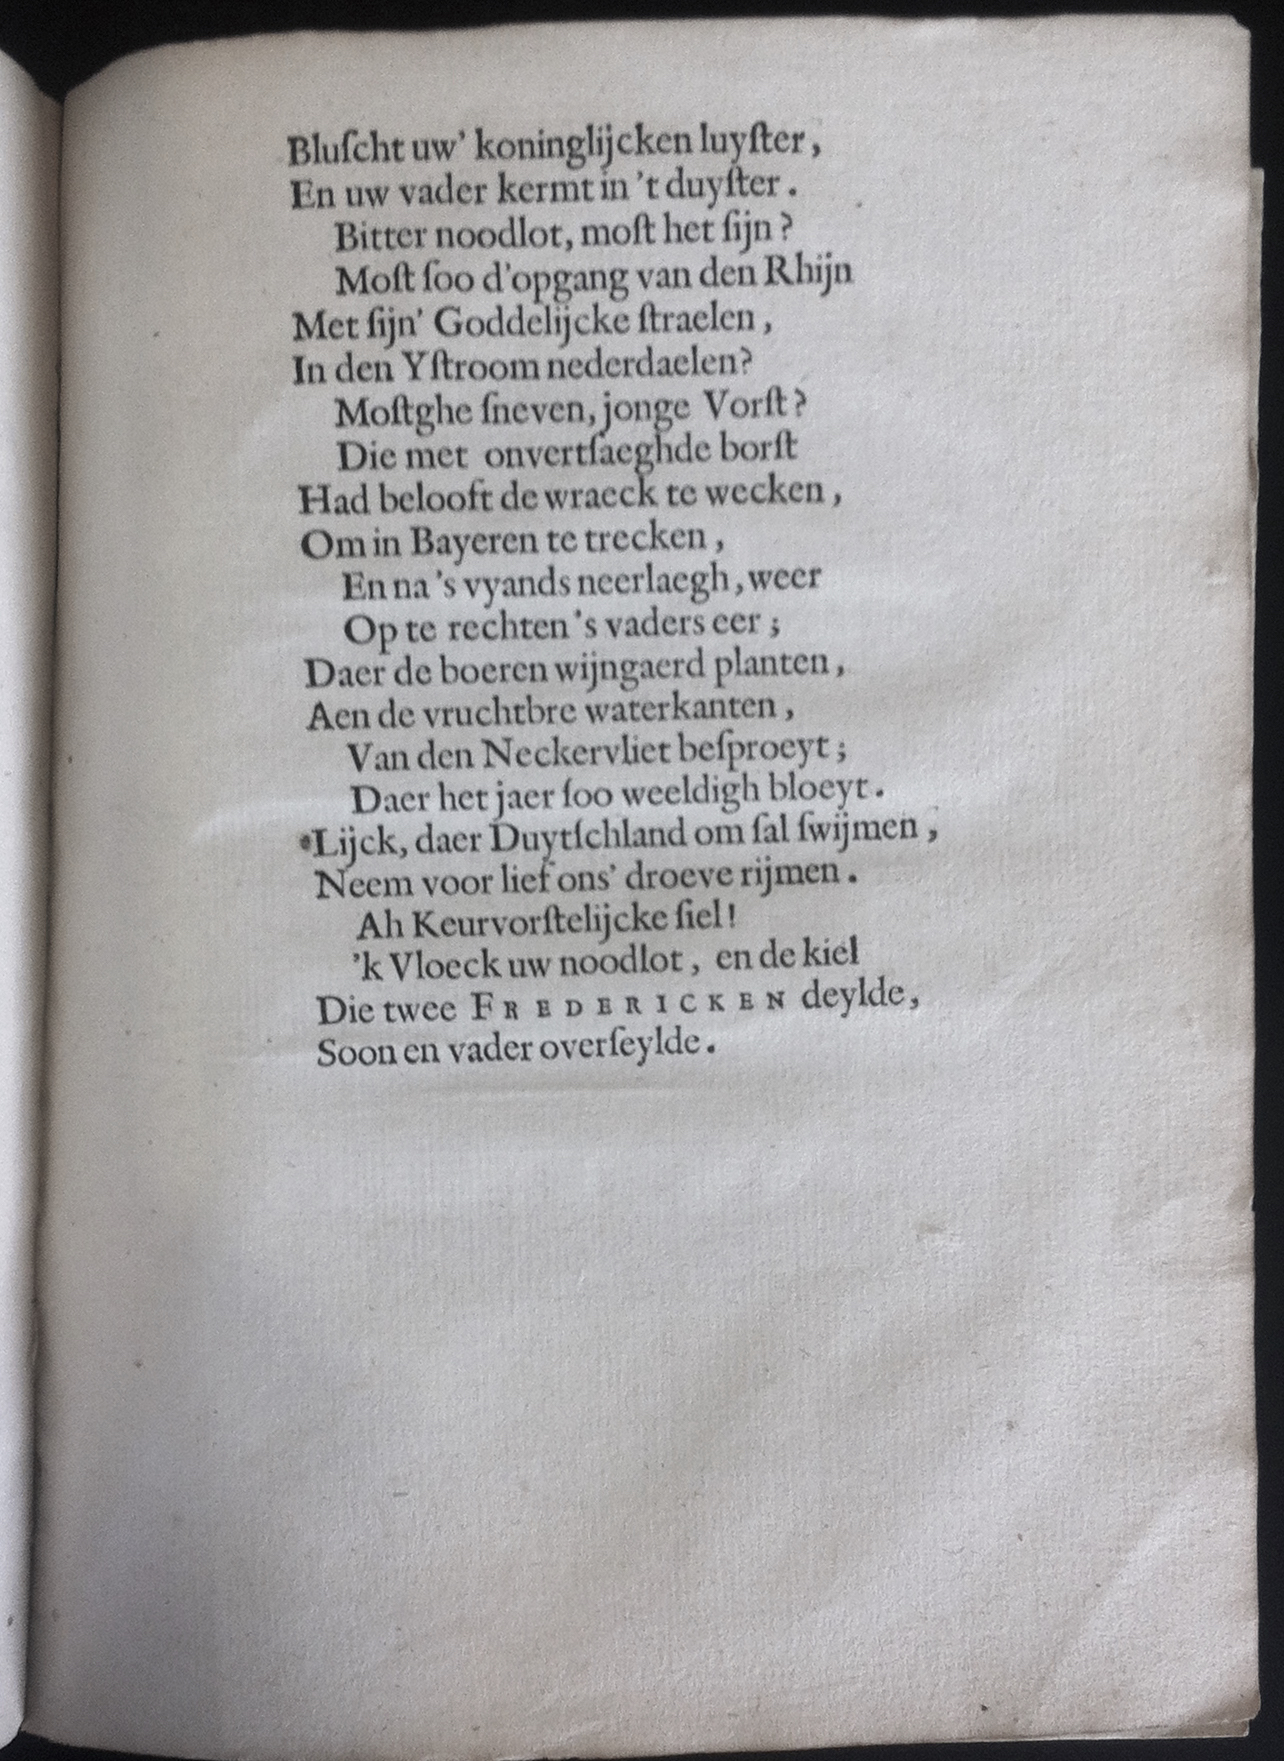 Bluſcht uw' koninglijcken luyſter,
En uw vader kermt in 't duyſter.
Bitter noodlot, moſt het ſijn?
Moſt ſoo d'opgang van den Rhijn
Met ſijn' Goddelijcke ſtraelen,
In den Yſtroom nederdaelen?
Moſtghe ſneven, jonge Vorſt?
Die met onvertſaeghde borſt
Had belooft de wraeck te wecken,
Om in Bayeren te trecken,
En na 's vyands neerlaegh, weer
Op te rechten 's vaders eer;
Daer de boeren wijngaerd planten,
Aen de vruchtbre waterkanten,
Van den Neckervliet beſproeyt;
Daer het jaer ſoo weeldigh bloeyt.
Lijck, daer Duytſchland om ſal ſwijmen,
Neem voor lief ons' droeve rijmen.
Ah Keurvorſtelijcke ſiel!
'k Vloeck uw noodlot, en de kiel
Die twee FREDERICKEN deylde,
Soon en vader overſeylde.